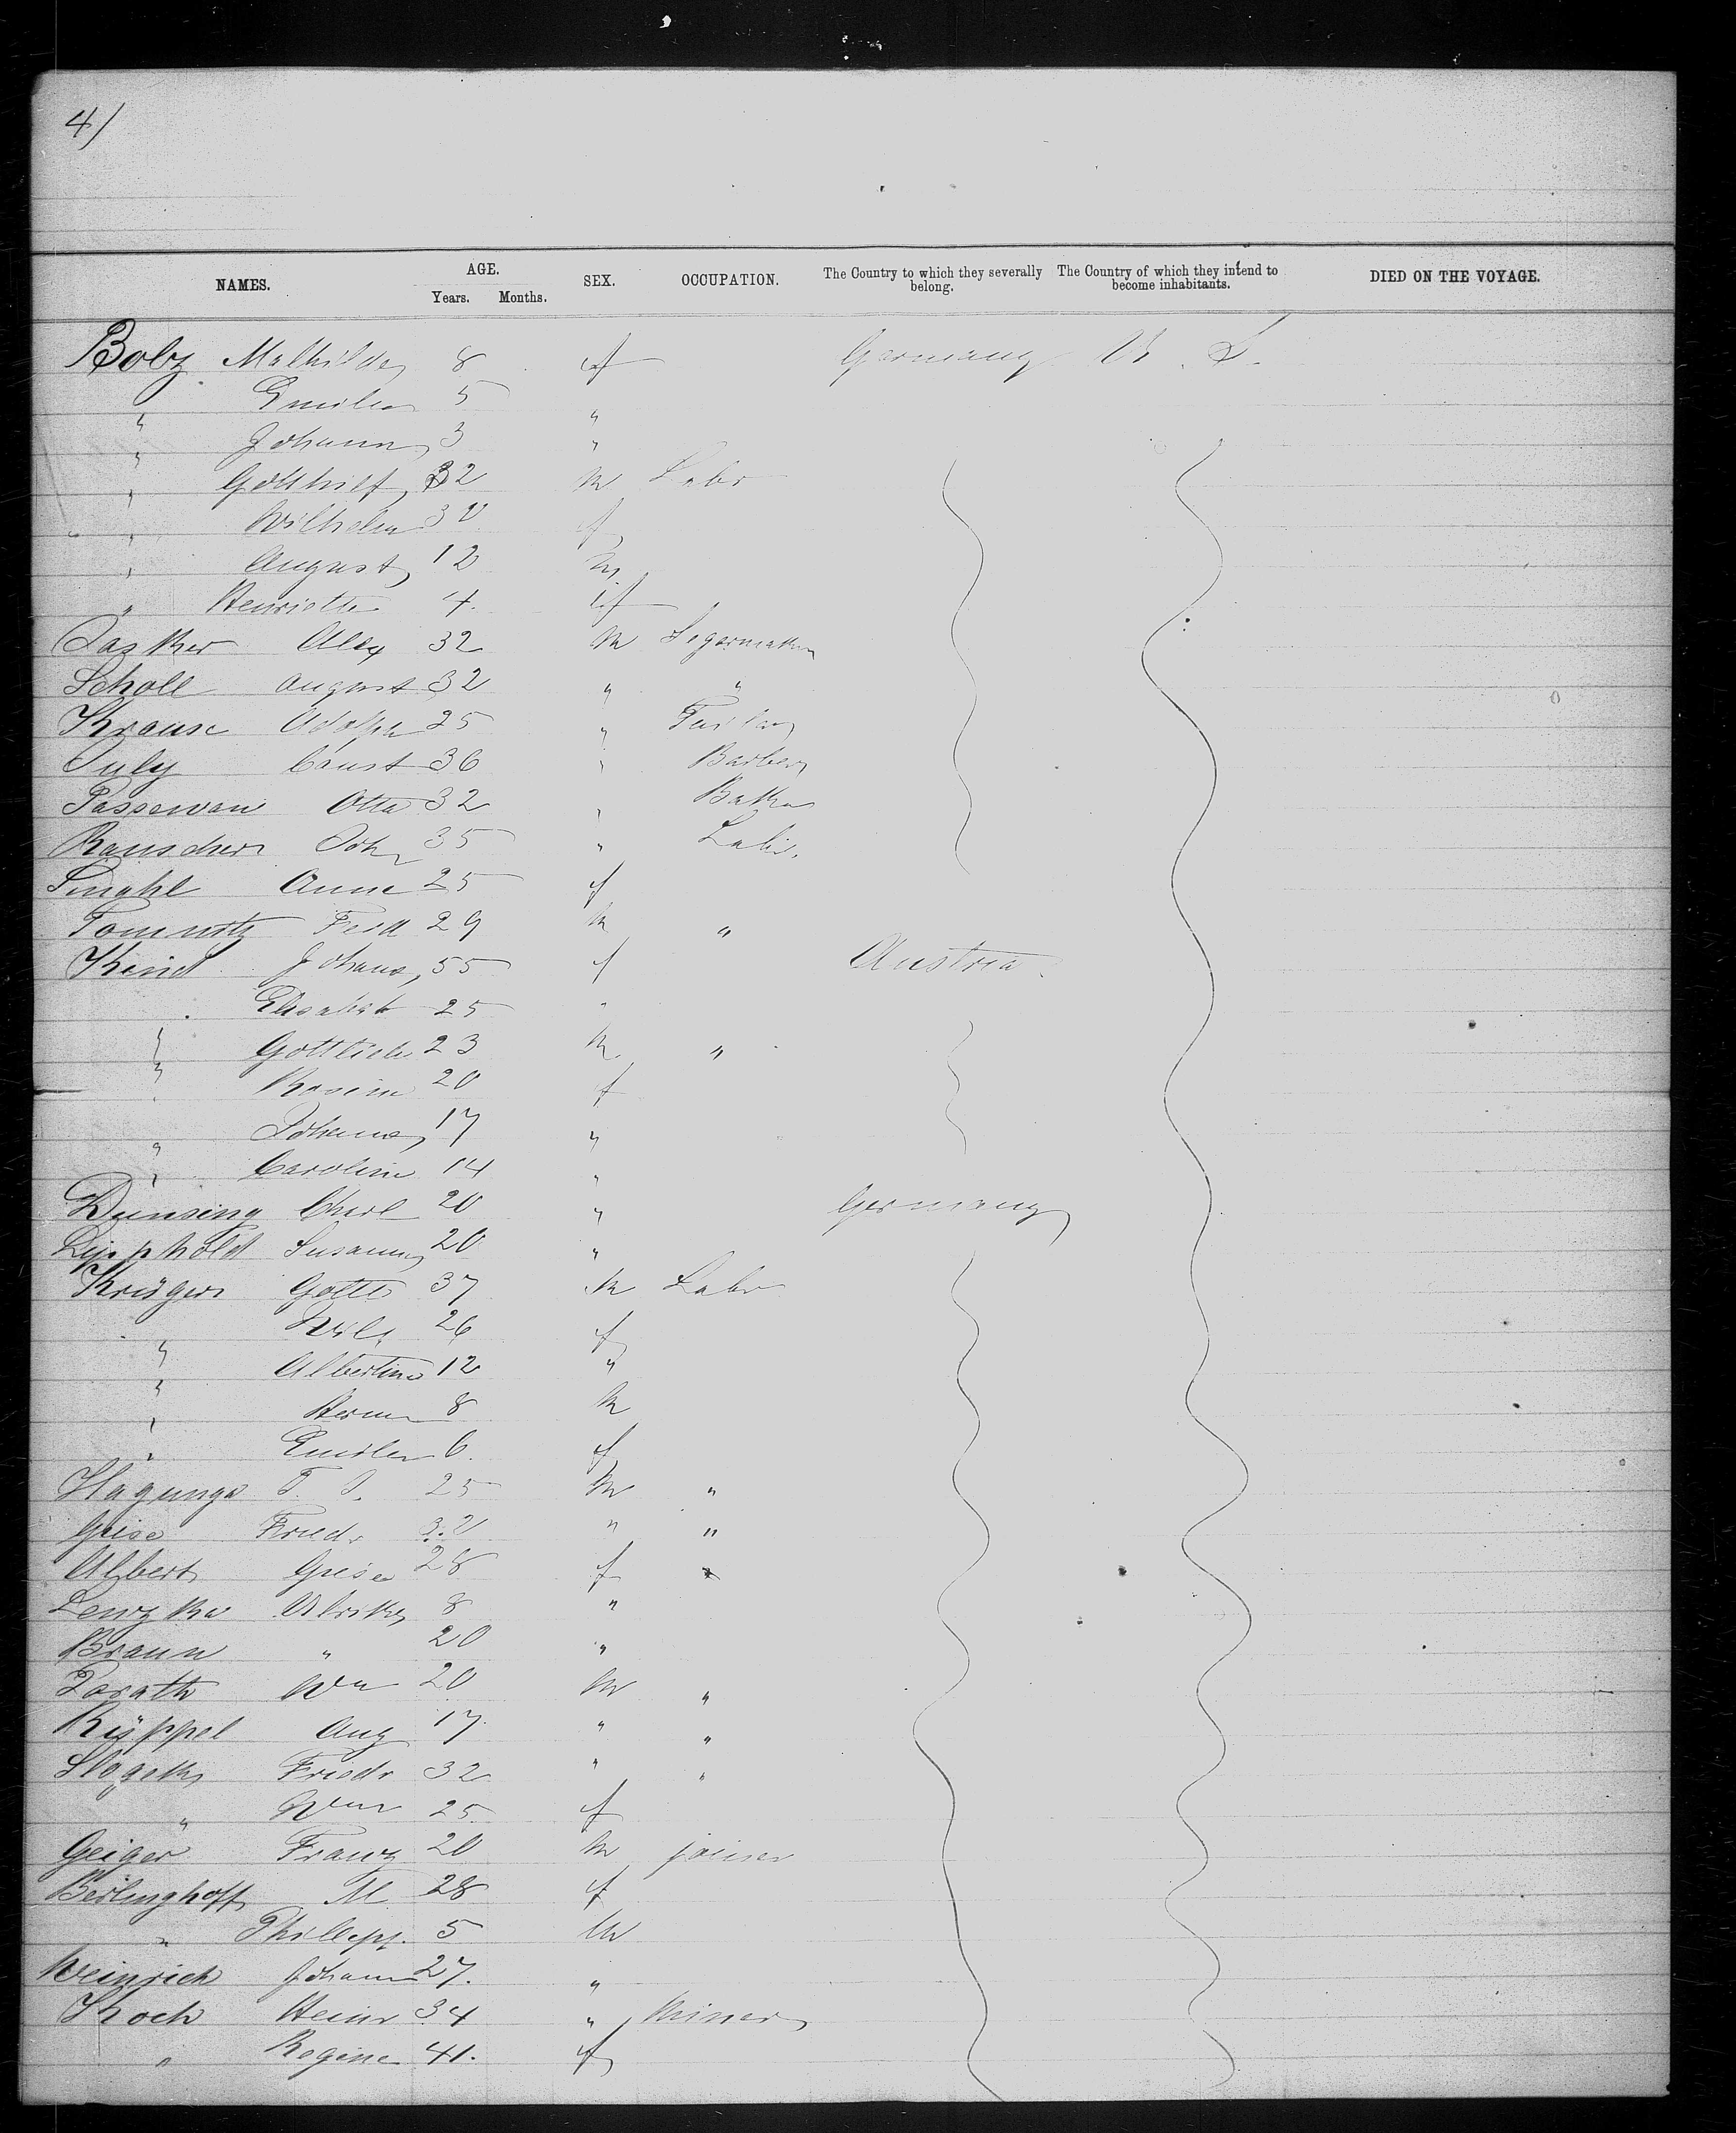 4/
NAMES. AGE. Years. Months. SEX. OCCUPATION. The Country to which they severally belong. The Country of which they intend to become inhabitants. DIED ON THE VOYAGE.
Bolz Mathilde 8 f Germany U. S.
" Emilie 5 "
" Johann 3 "
" Gotthilf 32 m Labr
" Wilhelm 30 f
" August 12 m
" Henriette 4. f
Tasker Alex 32 m Segarmaker
Scholl August 32 " "
Krause Adolph 25 "
July Const 36 " Barber
Passewan Otto 32 " Baker
Rauscher Joh 35 " Labr.
Anna 25 f
Ferd 29 m "
Kind Johana, 55 f Austria.
" Elisabet 25 "
" Gottlieb 23 m "
" Rosina 20 f
" Johanna 17 "
" Caroline 14 "
Dünsing Charl 20 " Germany
Lipphold Susanna 20 "
Krüger Gottl 37 m Labr
" Wilh 26 f
" Albertine 12 "
" Herm 8 m
" Emilie 6. f
Hagunga 25 m "
Grise Friedr 32 " "
Albert Grise 28 f
Ulrike 8 "
Braun " 20 "
Porath Wm 20 m "
Küppel Aug 17. " "
Friedr 32 " "
" 25 f
Geiger Franz 20 m joiner
Berlinghoff M. 28 f
" Phillepp. 5 m
Weinrich Johann 27. "
Koch Heinr 34 " Miner
" Regine 41. f